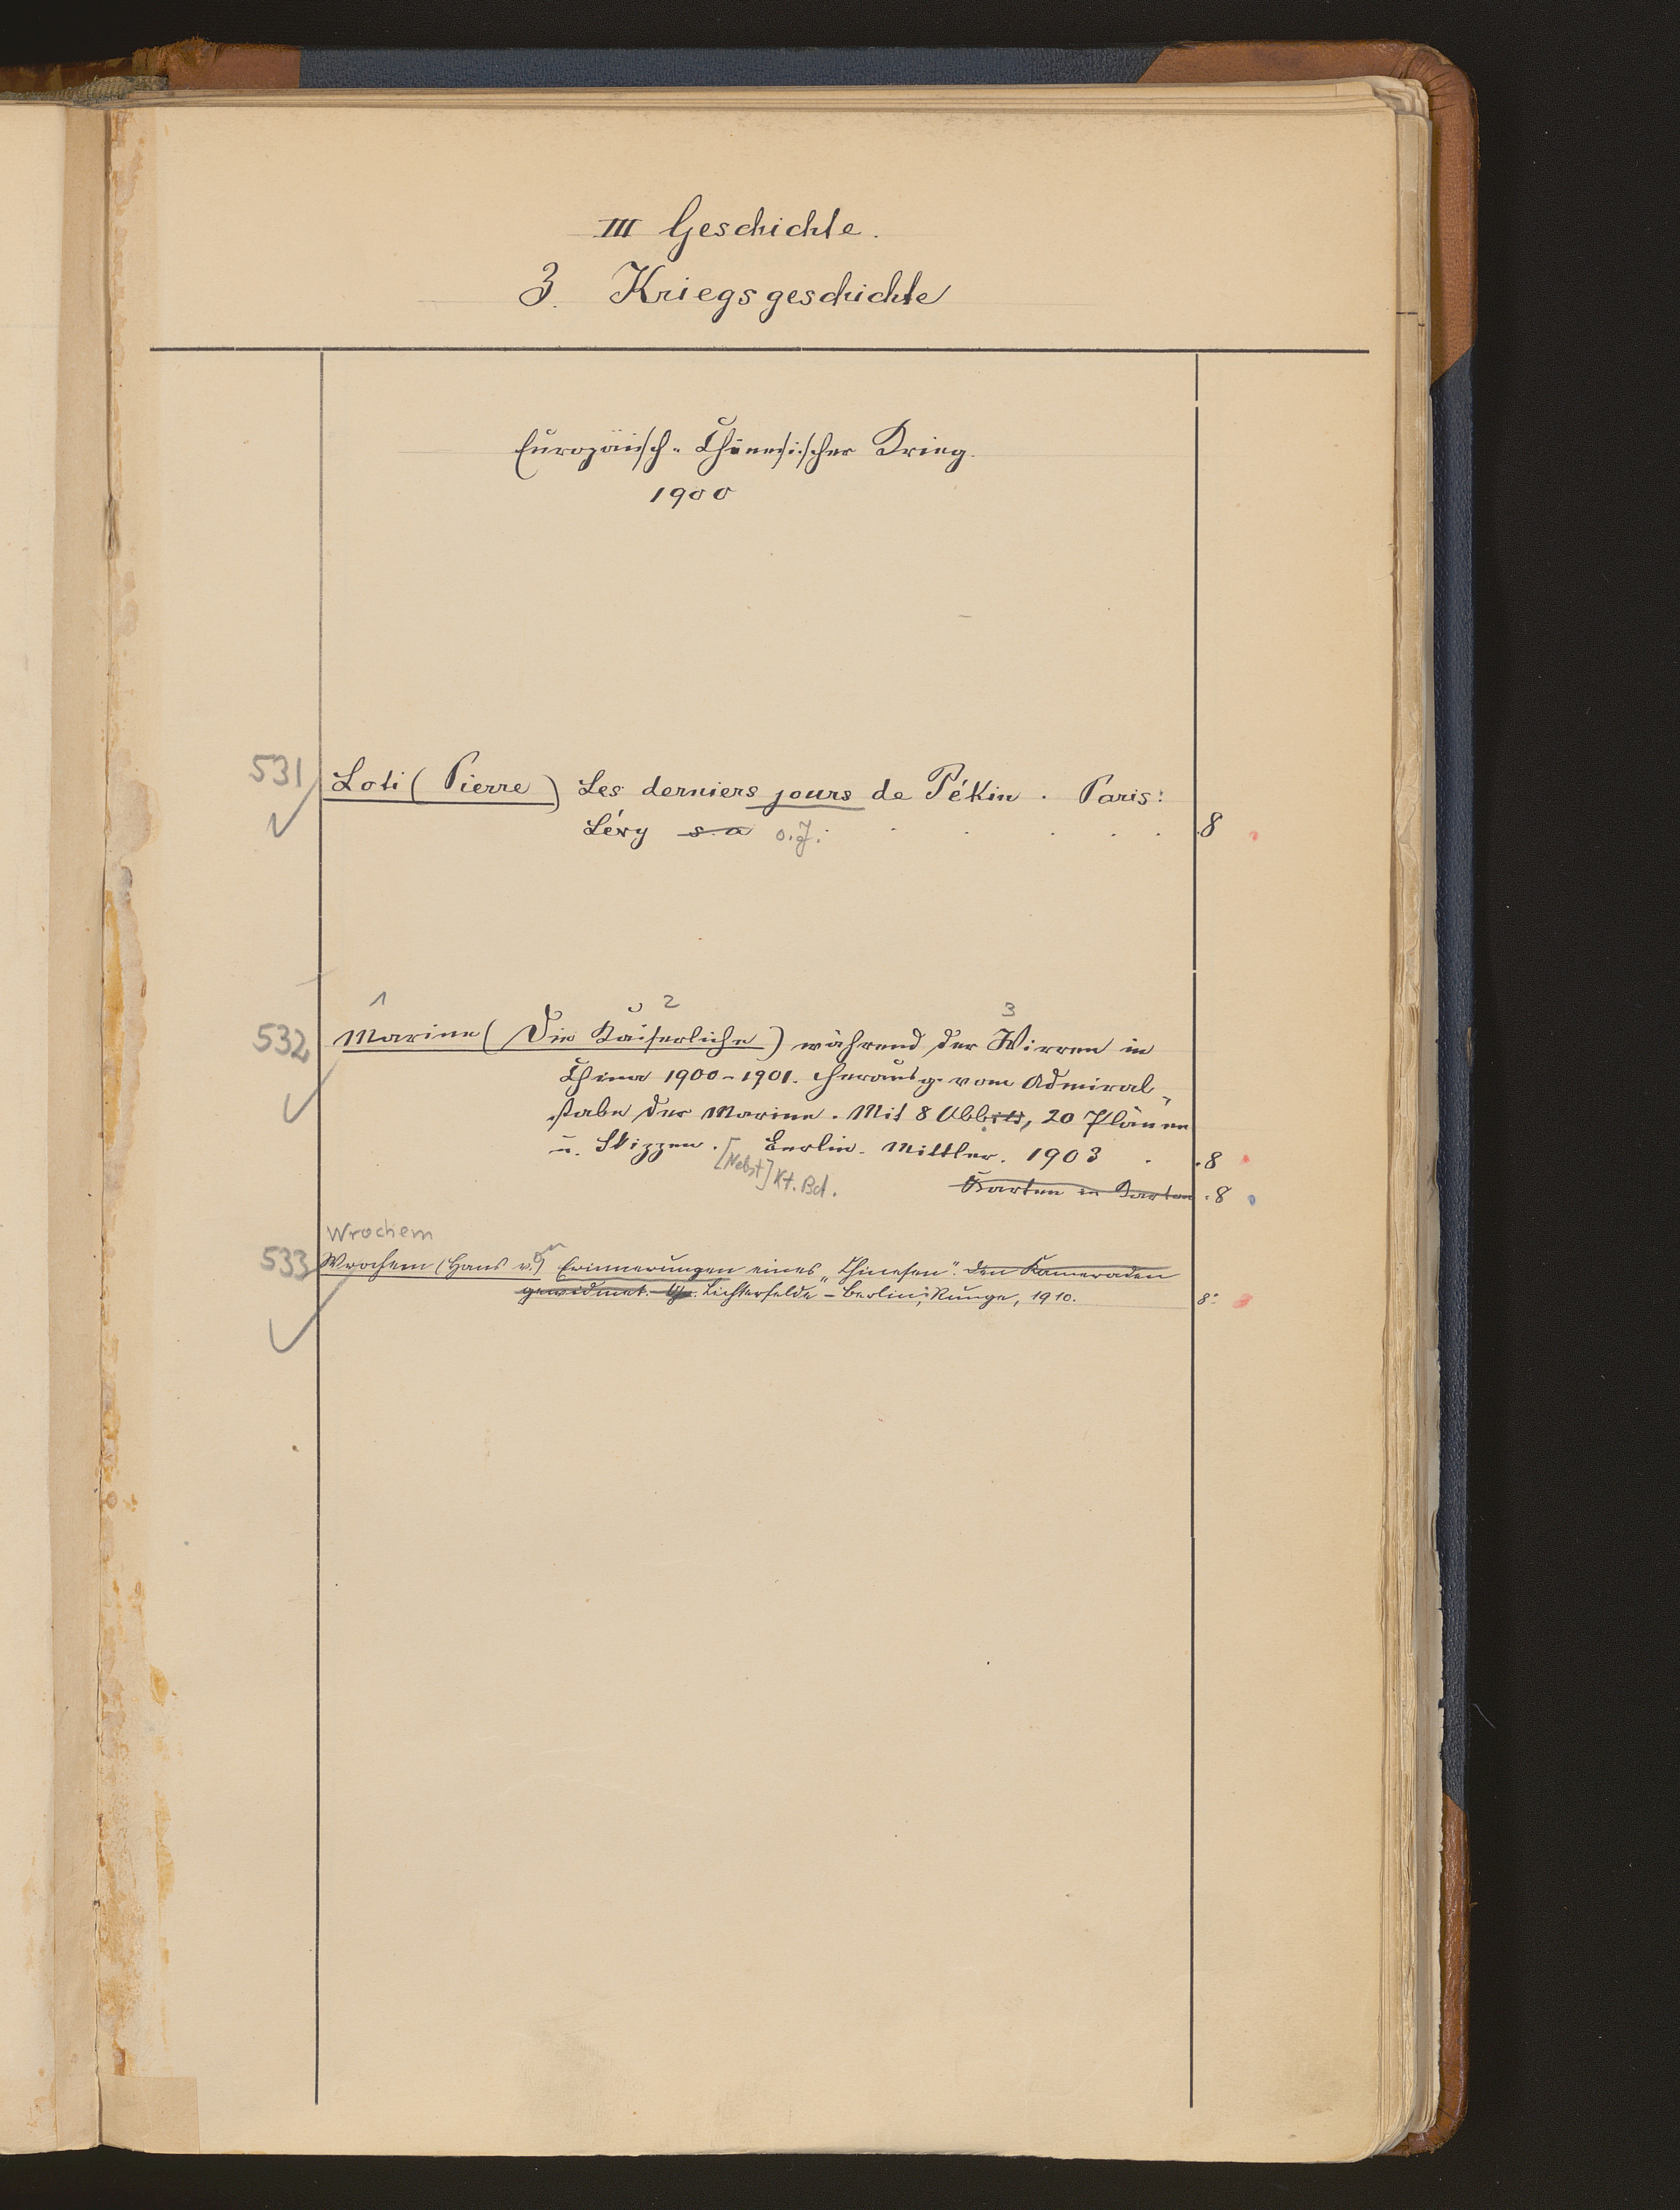 III Geschichte.
3. Kriegsgeschichte
Europäisch-Chinesischer Krieg.
1900
531 Loti (Pierre) Les derniers jours de Pékin. Paris:
Lévy s. a o.J. 8
1 2 3
532 Marine (Die Kaiserliche) während der Wirren in
China 1900-1901. Herausg. vom Admiral-
stabe der Marine. Mit 8 Abbild, 20 Plänen
u. Skizzen. Berlin. Mittler. 1903 . 8
[Nebst] Kt. Bd. Karten in Karton . 8
Wrochem
533 Wrochem (Hans v.) Erinnerungen eines „Chinesen“. Den Kameraden
gewidmet. Lichterfelde-Berlin: Runge, 1910. 8°